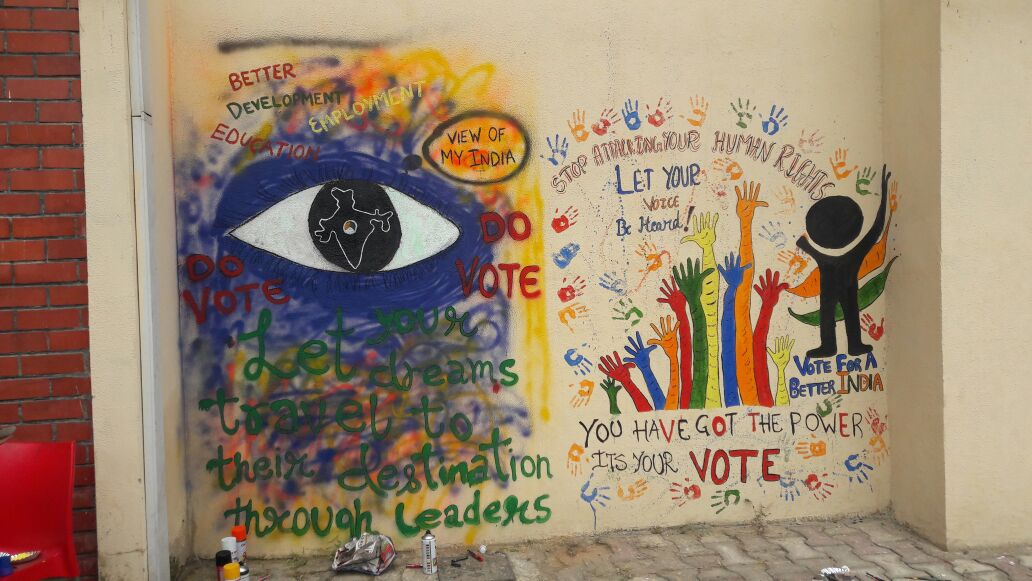 BETTER
DEVELOPMENT
EMPLOYMENT
EDUCATION
VIEW OF
MY INDIA
DO
VOTE
DO
VOTE
Let your
dreams
travel to
their destination
through Leaders
STOP ATTACKING YOUR HUMAN RIGHTS
LET YOUR
VOICE
Be Heard!
VOTE FOR A
BETTER INDIA
YOU HAVE GOT THE POWER
ITS YOUR VOTE